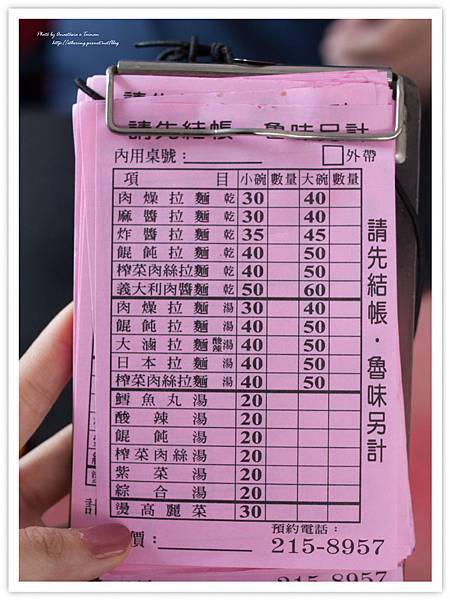 Photo by Anasthasia x Tainan
請先結帳．魯味另計
內用桌號： 外帶
項目 小碗 數量 大碗 數量
肉燥拉麵 乾 30 40
麻醬拉麵 乾 30 40
炸醬拉麵 乾 35 45
餛飩拉麵 乾 40 50
榨菜肉絲拉麵 乾 40 50
義大利肉醬麵 乾 50 60
肉燥拉麵 湯 30 40
餛飩拉麵 湯 40 50
大滷拉麵 酸辣湯 40 50
日本拉麵 湯 40 50
榨菜肉絲拉麵 湯 40 50
鱈魚丸湯 20
酸辣湯 20
餛飩湯 20
榨菜肉絲湯 20
紫菜湯 20
綜合湯 20
燙高麗菜 30
請先結帳．魯味另計
價： 預約電話：
215-8957
215-8957